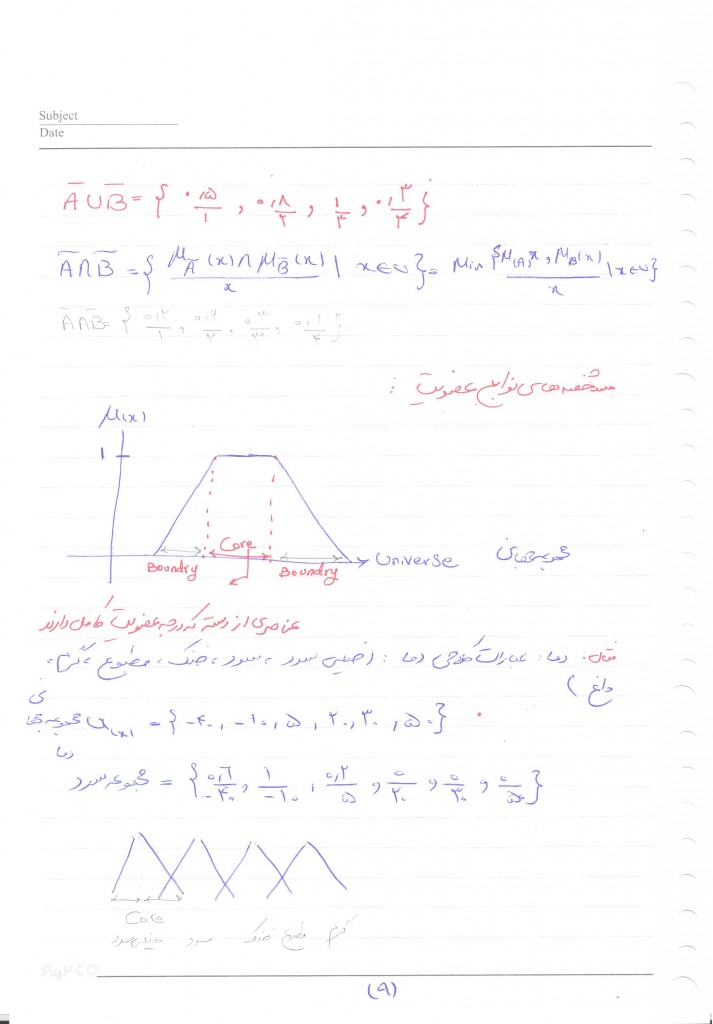 Subject
Date
Ā ∪ B̄ = { ۰,۵/۱ , ۰,۸/۲ , ۱/۳ , ۰,۳/۴ }
Ā ∩ B̄ = { μ_Ā (x) ∩ μ_B̄ (x) / x | x ∈ υ } = Min { μ(A)x , μ_B(x) / x | x ∈ υ }
Ā ∩ B̄ = { ۰,۲/۱ , ۰,۶/۲ , ۰,۳/۳ , ۰,۱/۴ }
مشخصه های توابع عضویت :
μ(x)
۱
Core
Boundry Boundry
Universe مجموعه جهانی
عناصری از دسته که درجه عضویت کامل دارند
مثال: دما: عبارات کلامی دما: (خیلی سرد، سرد، خنک، مطبوع، گرم،
داغ)
مجموعه جهانی دما U(x) = { -۴۰, -۱۰, ۵, ۲۰, ۳۰, ۵۰ }
مجموعه سرد = { ۰,۶/-۴۰ , ۱/-۱۰ , ۰,۲/۵ , ۰/۲۰ , ۰/۳۰ , ۰/۵۰ }
Core
خیلی سرد سرد خنک مطبوع گرم
PAPCO
(۹)